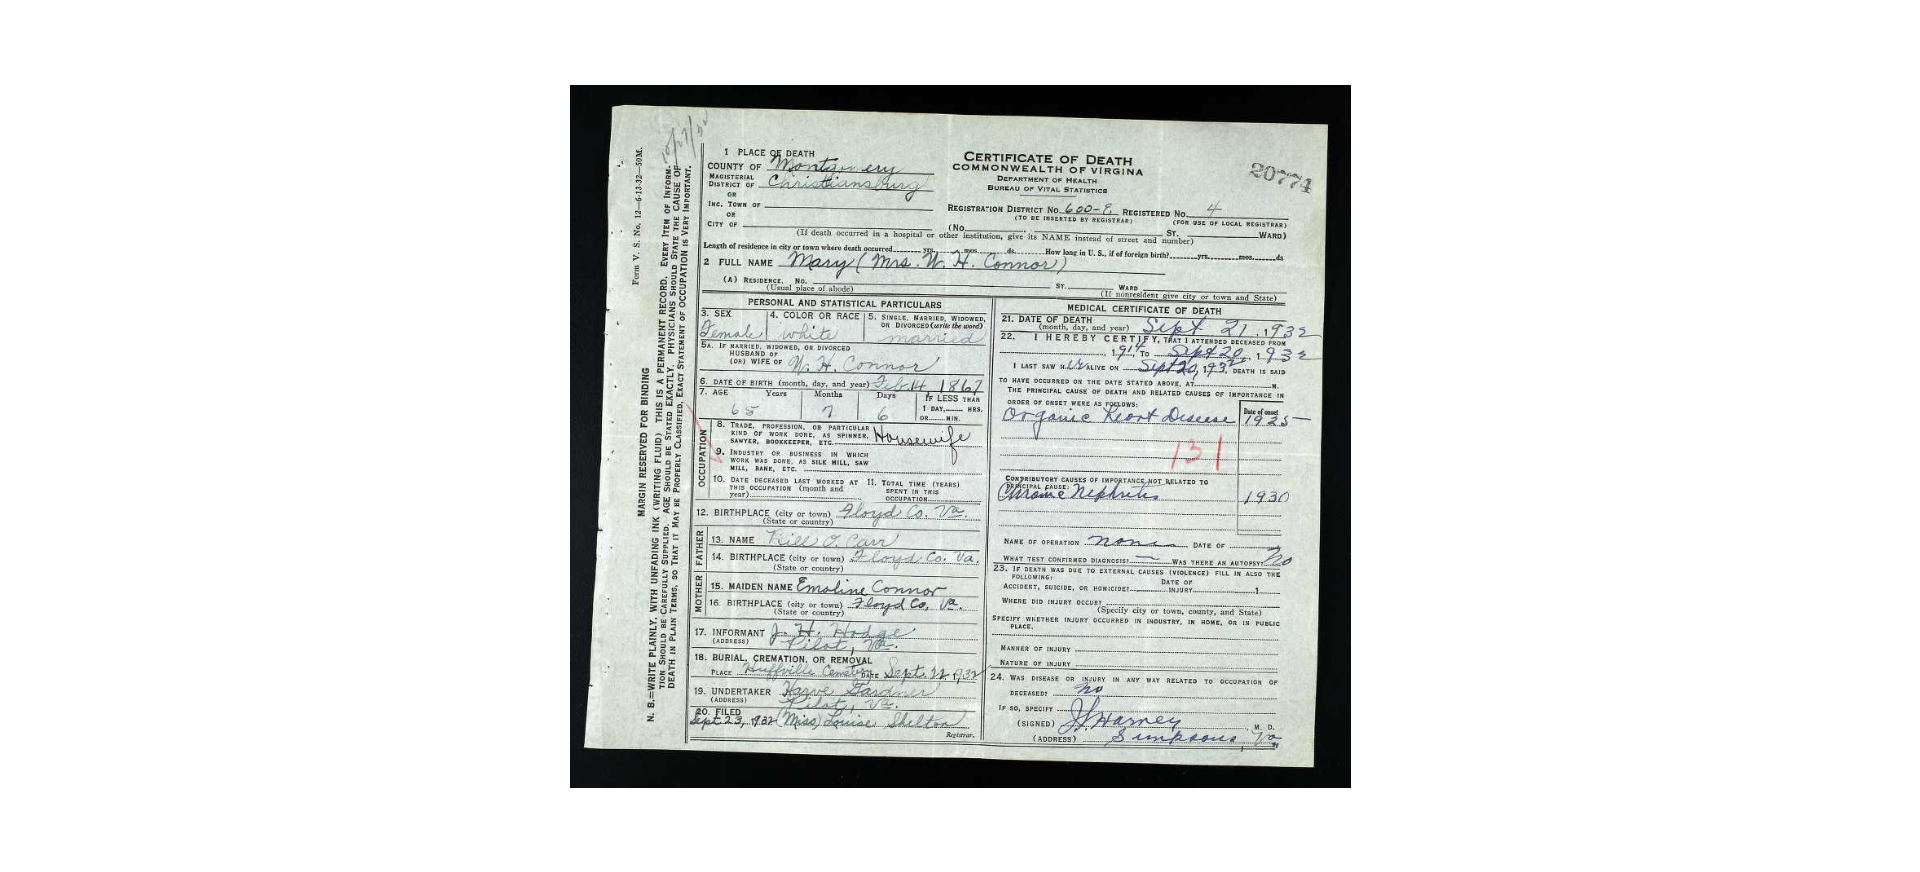 Form V. S. No. 12—6-13-32—50M.
MARGIN RESERVED FOR BINDING
N. B.—WRITE PLAINLY, WITH UNFADING INK (WRITING FLUID) THIS IS A PERMANENT RECORD. EVERY ITEM OF INFORM-
TION SHOULD BE CAREFULLY SUPPLIED. AGE SHOULD BE STATED EXACTLY. PHYSICIANS SHOULD STATE THE CAUSE OF
DEATH IN PLAIN TERMS, SO THAT IT MAY BE PROPERLY CLASSIFIED. EXACT STATEMENT OF OCCUPATION IS VERY IMPORTANT.
1 PLACE OF DEATH
COUNTY OF Montgomery
MAGISTERIAL DISTRICT OF Christiansburg
OR
INC. TOWN OF
OR
CITY OF
CERTIFICATE OF DEATH
COMMONWEALTH OF VIRGINA
DEPARTMENT OF HEALTH
BUREAU OF VITAL STATISTICS
20774
REGISTRATION DISTRICT No. 600-E REGISTERED No. 4
(TO BE INSERTED BY REGISTRAR) (FOR USE OF LOCAL REGISTRAR)
(No. ST. WARD)
(If death occurred in a hospital or other institution, give its NAME instead of street and number)
Length of residence in city or town where death occurred yrs. mos. ds. How long in U. S., if of foreign birth? yrs. mos. ds
2 FULL NAME Mary (Mrs. W. H. Connor)
(A) RESIDENCE. No. ST. WARD
(Usual place of abode) (If nonresident give city or town and State)
PERSONAL AND STATISTICAL PARTICULARS
3. SEX 4. COLOR OR RACE 5. SINGLE, MARRIED, WIDOWED, OR DIVORCED (write the word)
Female white married
5A. IF MARRIED, WIDOWED, OR DIVORCED
HUSBAND OF
(OR) WIFE OF W. H. Connor
6. DATE OF BIRTH (month, day, and year) Feb. 14 1867
7. AGE Years Months Days IF LESS THAN
65 7 6 1 DAY, HRS.
OR MIN.
OCCUPATION
8. TRADE, PROFESSION, OR PARTICULAR
KIND OF WORK DONE, AS SPINNER, Housewife
SAWYER, BOOKKEEPER, ETC.
9. INDUSTRY OR BUSINESS IN WHICH
WORK WAS DONE, AS SILK MILL, SAW
MILL, BANK, ETC.
10. DATE DECEASED LAST WORKED AT 11. TOTAL TIME (YEARS)
THIS OCCUPATION (month and SPENT IN THIS
year) OCCUPATION
12. BIRTHPLACE (city or town) Floyd Co. Va.
(State or country)
FATHER
13. NAME O. Carr
14. BIRTHPLACE (city or town) Floyd Co. Va.
(State or country)
MOTHER
15. MAIDEN NAME Emoline Connor
16. BIRTHPLACE (city or town) Floyd Co, Va.
(State or country)
17. INFORMANT J. H. Hodge
(ADDRESS) Pilot, Va.
18. BURIAL, CREMATION, OR REMOVAL
PLACE Huffville Cemetery DATE Sept. 22, 1932
19. UNDERTAKER Harve Gardner
(ADDRESS) Pilot, Va.
20. FILED
Sept 23, 1932 (Miss) Louise Shelton
Registrar.
MEDICAL CERTIFICATE OF DEATH
21. DATE OF DEATH
(month, day, and year) Sept 21, 1932
22. I HEREBY CERTIFY, THAT I ATTENDED DECEASED FROM
1914 TO Sept 20, 1932
I LAST SAW HER ALIVE ON Sept 20, 1932 DEATH IS SAID
TO HAVE OCCURRED ON THE DATE STATED ABOVE, AT M.
THE PRINCIPAL CAUSE OF DEATH AND RELATED CAUSES OF IMPORTANCE IN
ORDER OF ONSET WERE AS FOLLOWS:
Date of onset
Organic Heart Disease 1925
131
CONTRIBUTORY CAUSES OF IMPORTANCE NOT RELATED TO
PRINCIPAL CAUSE:
Chronic Nephritis 1930
NAME OF OPERATION none DATE OF
WHAT TEST CONFIRMED DIAGNOSIS? — WAS THERE AN AUTOPSY? No
23. IF DEATH WAS DUE TO EXTERNAL CAUSES (VIOLENCE) FILL IN ALSO THE
FOLLOWING:
ACCIDENT, SUICIDE, OR HOMICIDE? DATE OF INJURY 1
WHERE DID INJURY OCCUR?
(Specify city or town, county, and State)
SPECIFY WHETHER INJURY OCCURRED IN INDUSTRY, IN HOME, OR IN PUBLIC
PLACE.
MANNER OF INJURY
NATURE OF INJURY
24. WAS DISEASE OR INJURY IN ANY WAY RELATED TO OCCUPATION OF
DECEASED? no
IF SO, SPECIFY
(SIGNED) Harney, M. D.
(ADDRESS) Simpsons, Va